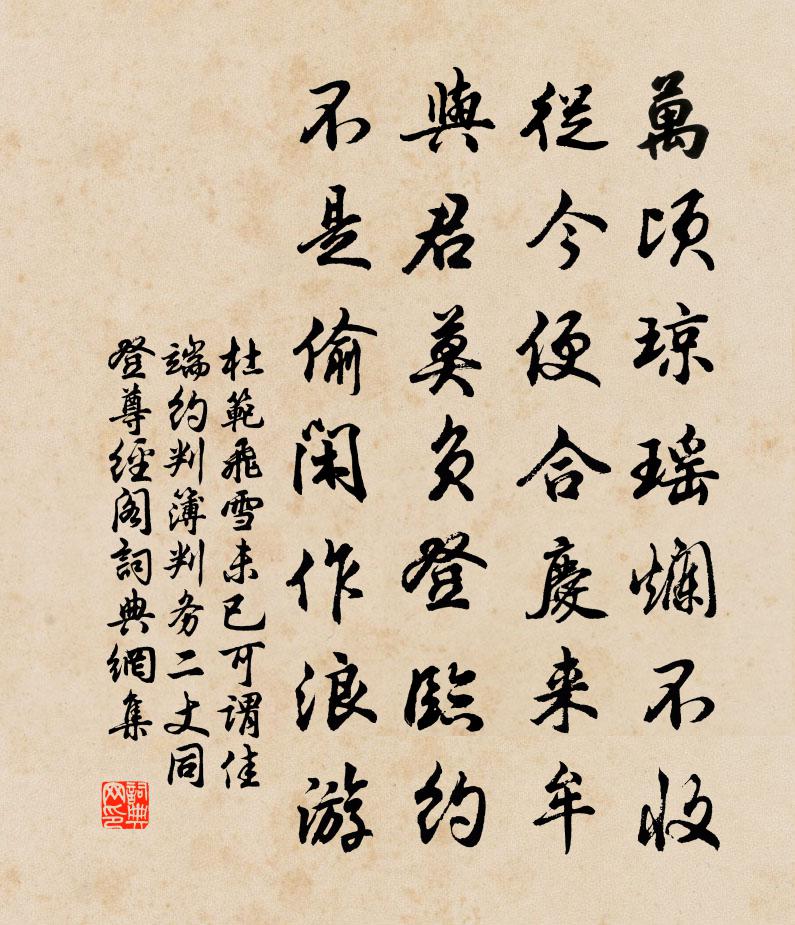 萬頃琼瑶爛不收
從今便合慶来牟
與君莫負登臨約
不是偷閑作浪游
杜範飛雪未已可謂佳
端約判簿判务二丈同
登尊經阁詞典網集
詞典网印